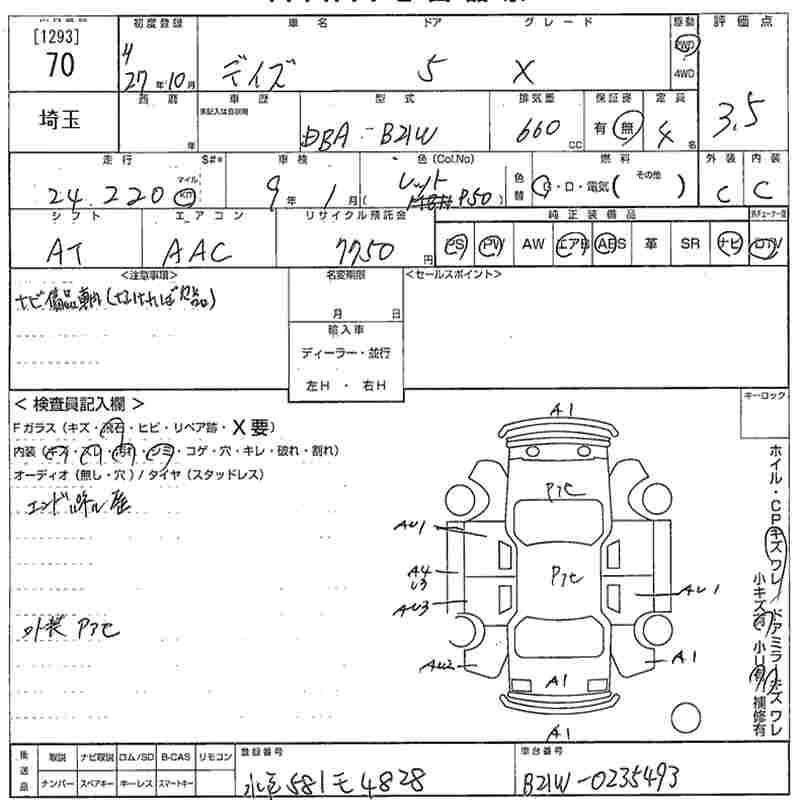 [1293]
70
初度登録
車名
ドア
グレード
駆動
評価点
27年10月
デイズ
5
X
2WD
4WD
3.5
埼玉
西暦
年
車歴
未記入は自家用
型式
DBA-B21W
排気量
660
CC
保証書
有 無
定員
4
名
走行
$#*
24,220
マイル
km
車検
9年1月
色(Col.No)
レッド
P50)
色替
燃料
G・D・電気( その他 )
外装
C
内装
C
シフト
AT
エアコン
AAC
リサイクル預託金
7750
円
純正装備品
PS
PW
AW
エアB
ABS
革
SR
ナビ
TV
<注意事項>
ナビ備品車内(なければ欠品)
名変期限
月
日
<セールスポイント>
輸入車
ディーラー・並行
左H ・ 右H
< 検査員記入欄 >
Fガラス(キズ・飛石・ヒビ・リペア跡・X要)
内装(キズ・スレ・汚れ・シミ・コゲ・穴・キレ・破れ・割れ)
オーディオ(無し・穴)/タイヤ(スタッドレス)
外装 Pアセ
キーロック
A1
Pアセ
AU1
A4
AU3
Pアセ
AU1
AU2
A1
A1
A1
ホイル・CPキズワレ/ドアミラーキズワレ
小キズ有 小U有 補修有
後送品
取説
ナビ取説
ロム/SD
B-CAS
リモコン
ナンバー
スペアキー
キーレス
スマートキー
登録番号
581モ4828
車台番号
B21W-0235493